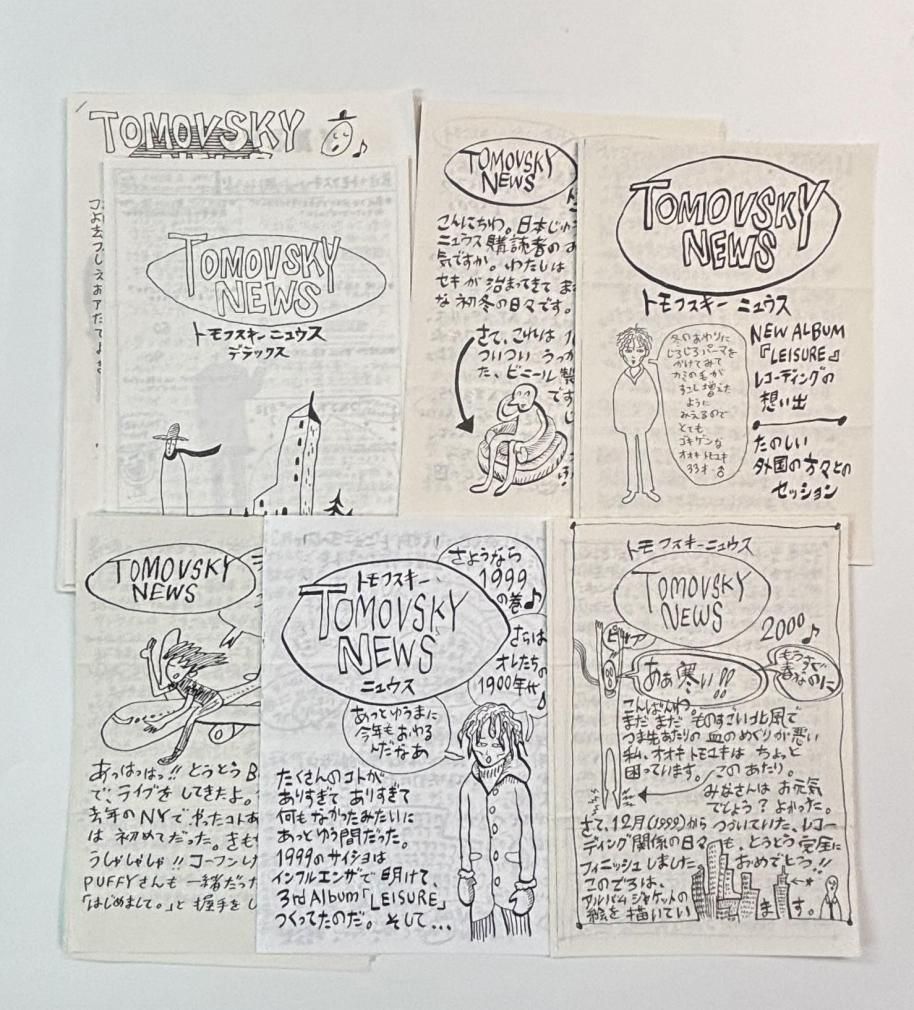 TOMOVSKY
NEWS
TOMOVSKY
NEWS
トモフスキー ニュウス
デラックス
TOMOVSKY
NEWS
こんにちわ。日本じゅう
ニュウス購読者の
気ですか。わたしは
セキが治まってきて
な初冬の日々です。
さて、これは
ついつい うっか
た、ビニール製
です
TOMOVSKY
NEWS
トモフスキー ニュウス
冬のおわりに
じろじろパーマを
かけてみて
カミの毛が
すこし増えた
ように
みえるので
とても
ゴキゲンな
オオキトモユキ
33才
NEW ALBUM
『LEISURE』
レコーディングの
想い出
たのしい
外国の方々との
セッション
TOMOVSKY
NEWS
あっはっはっ!! とうとう B
で、ライブをしてきたよ。
去年のNYでやったコトあ
は 初めてだった。きもち
うしゃしゃしゃ!! コーフンし
PUFFYさんも 一緒だった
「はじめまして。」と握手をし
さようなら
1999
の巻♪
トモフスキー
TOMOVSKY
NEWS
ニュウス
さらば
オレたちの
1900年代♪
あっとゆうまに
今年もおわる
んだなあ
たくさんのコトが
ありすぎて ありすぎて
何もなかったみたいに
あっとゆう間だった。
1999のサイショは
インフルエンザで明けて、
3rd Album「LEISURE」
つくってたのだ。そして...
トモフスキーニュウス
TOMOVSKY
NEWS
2000♪
あぁ寒い!!
もうすぐ
春なのに
こんばんわ。
まだまだ ものすごい北風で
つま先あたりの 血のめぐりが悪い
私、オオキトモユキは ちょっと
困っています。 このあたり。
みなさんは お元気
でしょう? よかった。
さて、12月(1999)から つづいていた、レコー
ディング関係の日々も、とうとう 完全に
フィニッシュしました。おめでとう!!
このごろは、
アルバムジャケットの
絵を描いてい ます。